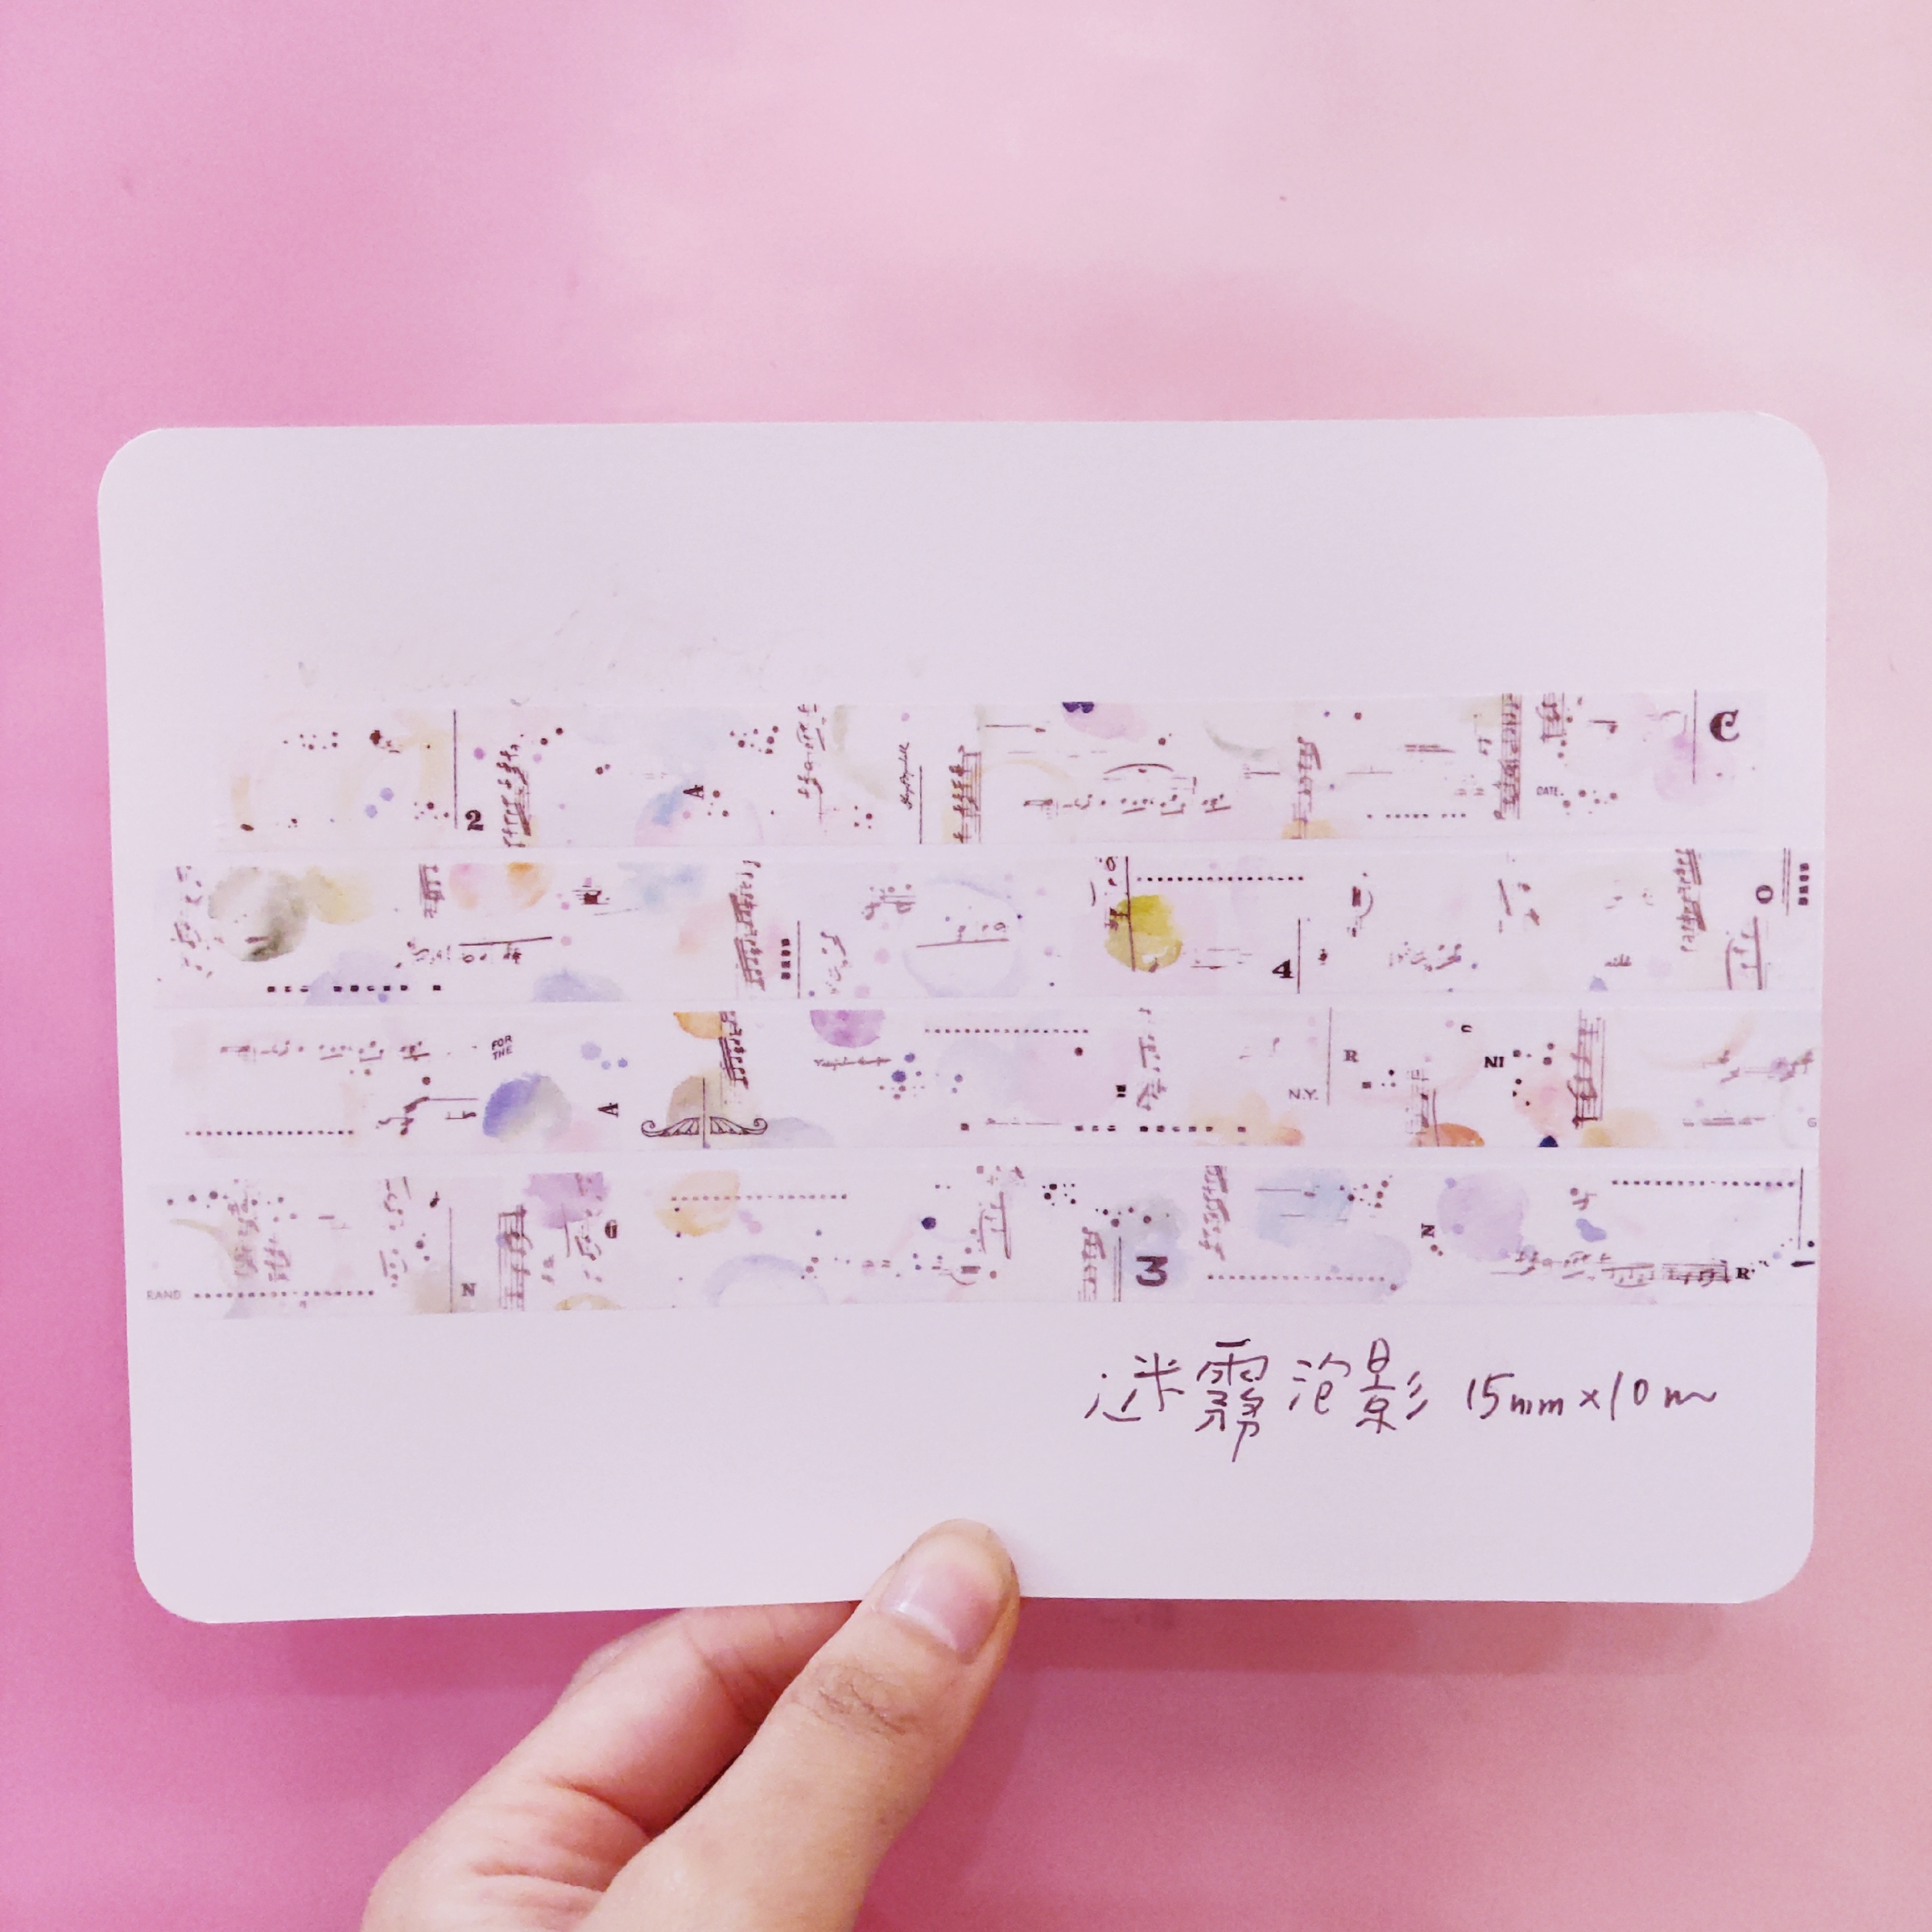 2 A DATE C
4 O
FOR
THE
A N.Y. R C NI G
RAND N G 3 N R
迷霧泡影 15mm×10m